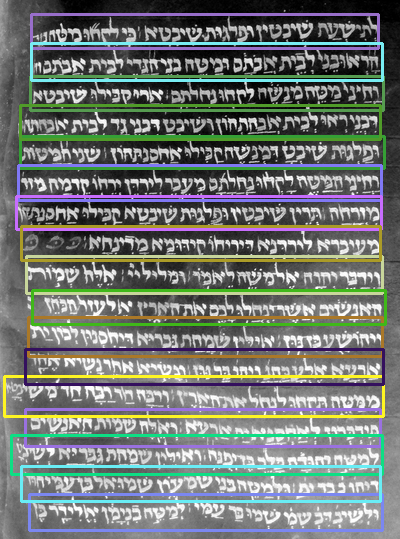 לתישעת שיבטין ופלגות שיבטא כי לקחו מטה בני
הראובני לבית אבתם ומטה בני הגדי לבית אבתם
וחצי מטה מנשה לקחו נחלתם ארי קבילו שיבטא
דבני ראובן לבית אבהתהון ושיבט דבני גד לבית אבהתהון
ופלגות שיבט דמנשה קבילו אחסנתהון שני המטות
וחצי המטה לקחו נחלתם מעבר לירדן ירחו קדמה מזר
מזרחה תרין שיבטין ופלגות שיבטא קבילו אחסנתהון
מעיברא לירדנא דיריחו קידומא מדינחא
וידבר יהוה אל משה לאמר ומליל יי אלה שמות
האנשים אשר ינחלו לכם את הארץ אלעזר הכהן
ויהושע בן נון אילין שמהת גבריא דיחסנון לכון ית
ארעא אלעזר ויהושע בר נון ונשיא אחד נשיא אחד
ממטה תקחו לנחל את הארץ ורבה חד רבה חד משיבטא
תידברון לאחסנא ית ארעא ואלה שמות האנשים
למטה יהודה כלב בן יפנה ואילין שמהת גבריא לשיבטא
דיהודה כלב בר יפנה ולמטה בני שמעון שמואל בן עמיהוד
ולשיבטא דבני שמעון שמואל בר עמי למטה בנימן אלידד בן